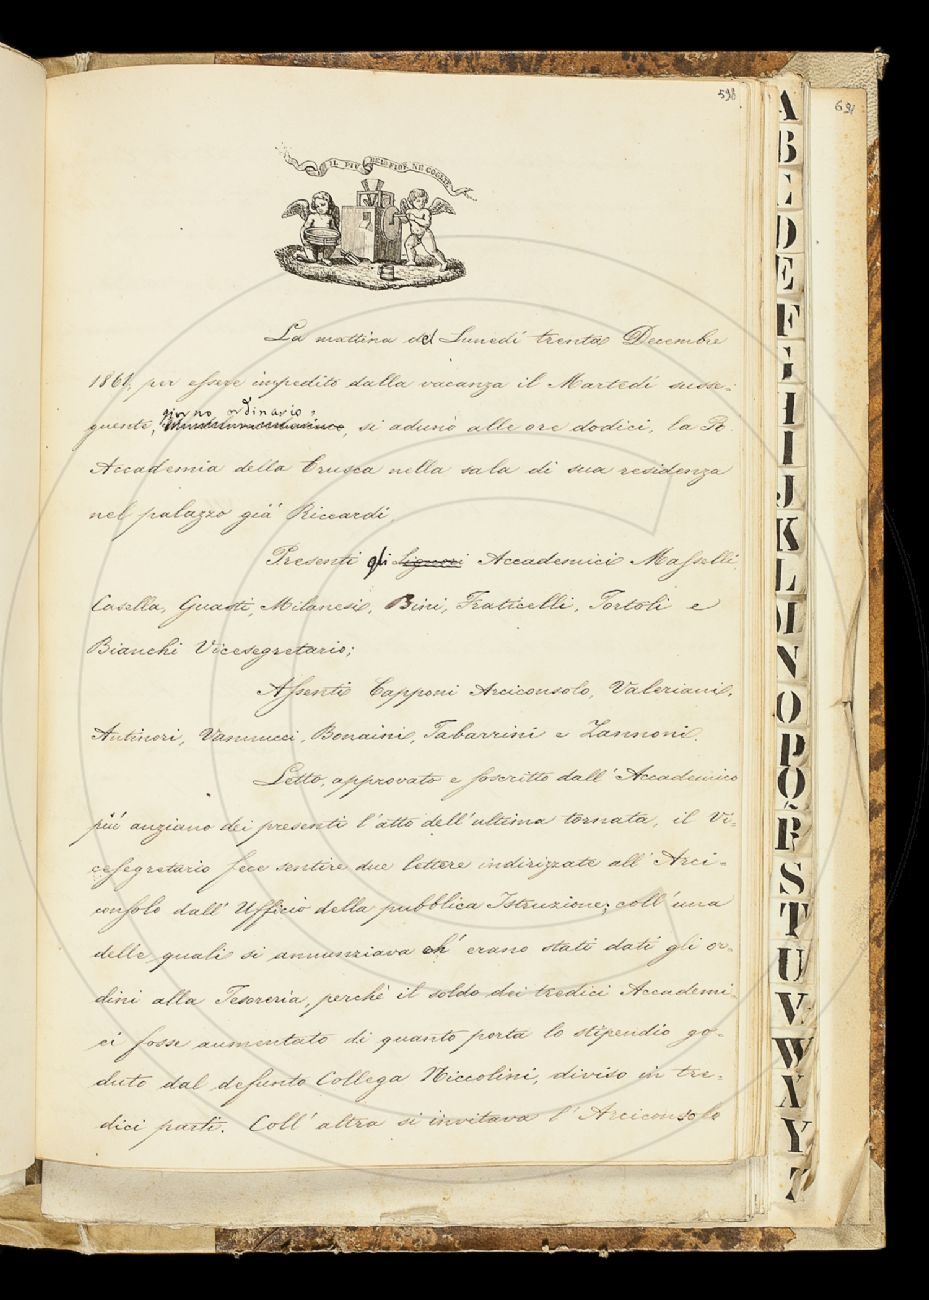 598
691
IL PIÙ BEL FIOR NE COGLIE
La mattina del Lunedí trenta Decembre
1861, per essere impedito dalla vacanza il Martedí susse-
giorno ordinario,
quente, si adunò alle ore dodici, la R.
Accademia della Crusca nella sala di sua residenza
nel palazzo giá Riccardi.
Presenti gli Signori Accademici Masselli,
Casella, Guasti, Milanesi, Bini, Fraticelli, Tortoli e
Bianchi Vicesegretario;
Assenti Capponi Arciconsolo, Valeriani,
Antinori, Vannucci, Bonaini, Tabarrini e Zannoni.
Letto, approvato e soscritto dall' Accademico
piú anziano dei presenti l'atto dell'ultima tornata, il Vi-
cesegretario fece sentire due lettere indirizzate all' Arci-
consolo dall' Ufficio della pubblica Istruzione; coll' una
delle quali si annunziava ch' erano stati dati gli or-
dini alla Tesoreria, perchè il soldo dei tredici Accademi-
ci fosse aumentato di quanto porta lo stipendio go-
duto dal defunto Collega Niccolini, diviso in tre-
dici parti. Coll' altra si invitava l' Arciconsolo
A
B
C
D
E
F
G
H
I
J
K
L
M
N
O
P
Q
R
S
T
U
V
W
X
Y
Z